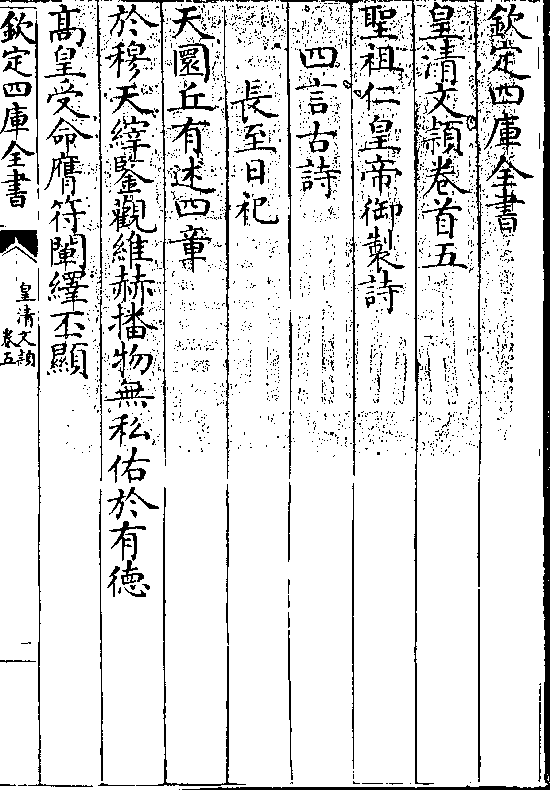 欽定四庫全書
皇清文頴卷首五
聖祖仁皇帝御製詩
四言古詩
長至日祀
天圜丘有述四章
於穆天縡鑒觀維赫播物無私佑於有德
高皇受命膺符闡繹丕顯
欽定四庫全書
皇清文頴
卷五
一